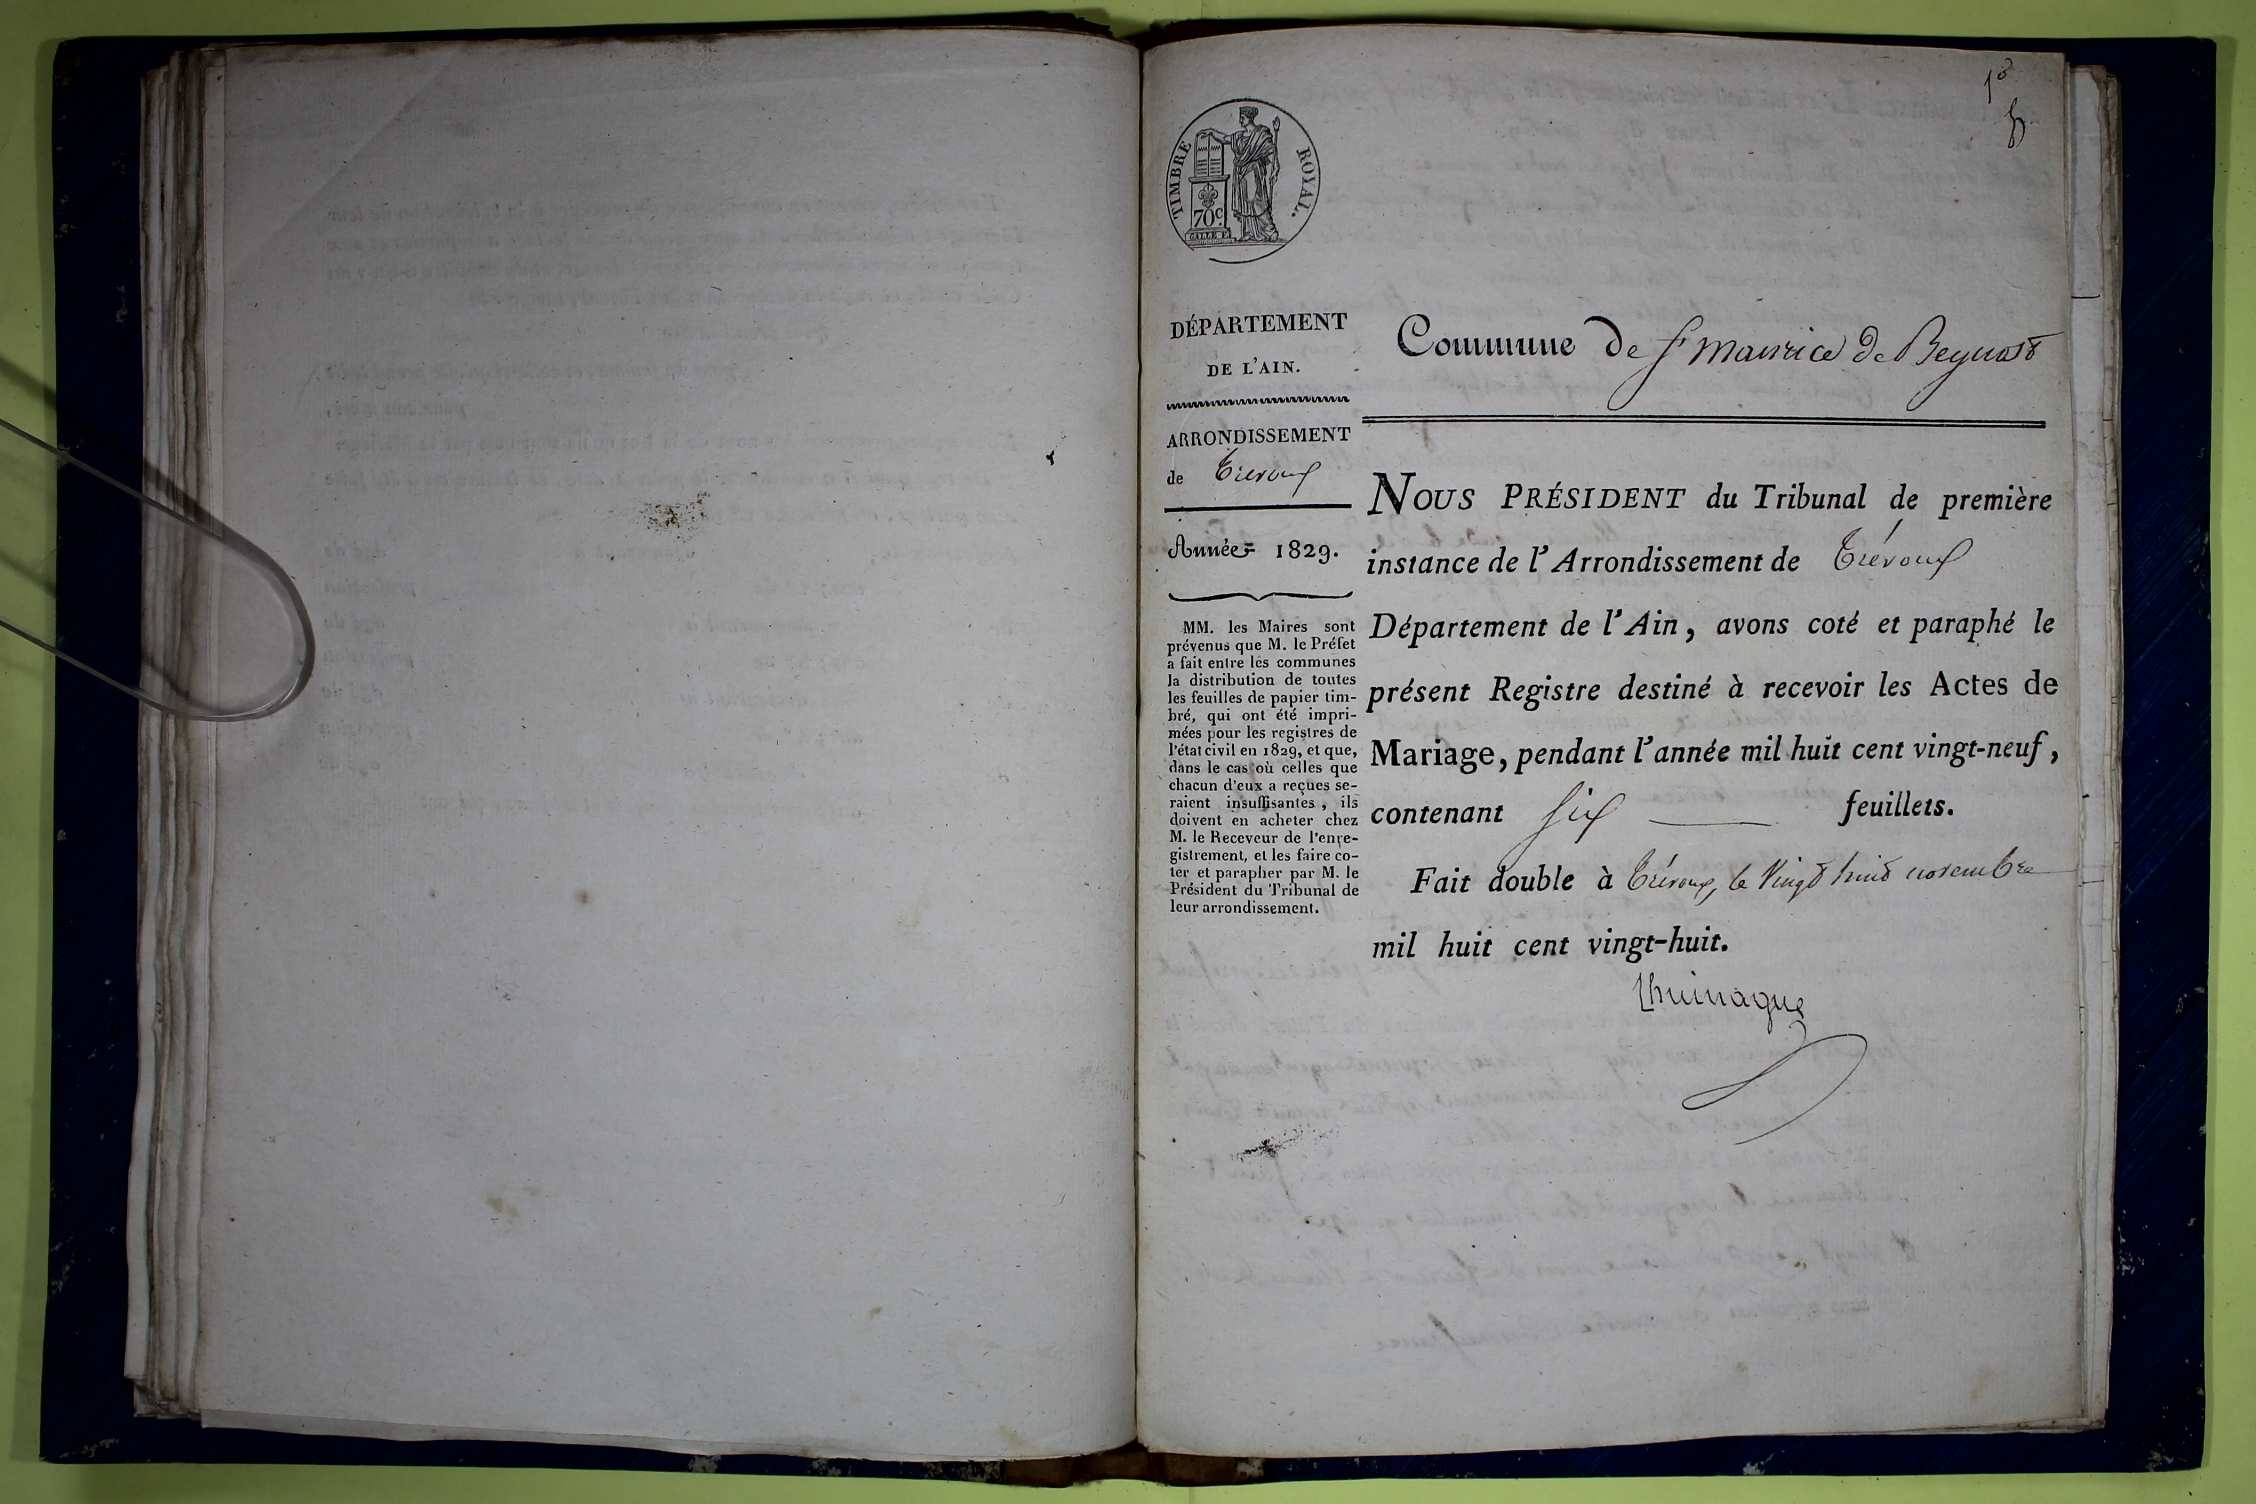 1º
TIMBRE ROYAL.
70c.
DÉPARTEMENT
DE L'AIN.
ARRONDISSEMENT
de Trevoux
Année 1829.
MM. les Maires sont
prévenus que M. le Préfet
a fait entre les communes
la distribution de toutes
les feuilles de papier tim-
bré, qui ont été impri-
mées pour les registres de
l'état civil en 1829, et que,
dans le cas où celles que
chacun d'eux a reçues se-
raient insuffisantes, ils
doivent en acheter chez
M. le Receveur de l'enre-
gistrement, et les faire co-
ter et parapher par M. le
Président du Tribunal de
leur arrondissement.
Commune de St Maurice de Beynost
NOUS PRÉSIDENT du Tribunal de première
instance de l'Arrondissement de Trévoux
Département de l'Ain, avons coté et paraphé le
présent Registre destiné à recevoir les Actes de
Mariage, pendant l'année mil huit cent vingt-neuf,
contenant six feuillets.
Fait double à Trévoux, le vingt huit novembre
mil huit cent vingt-huit.